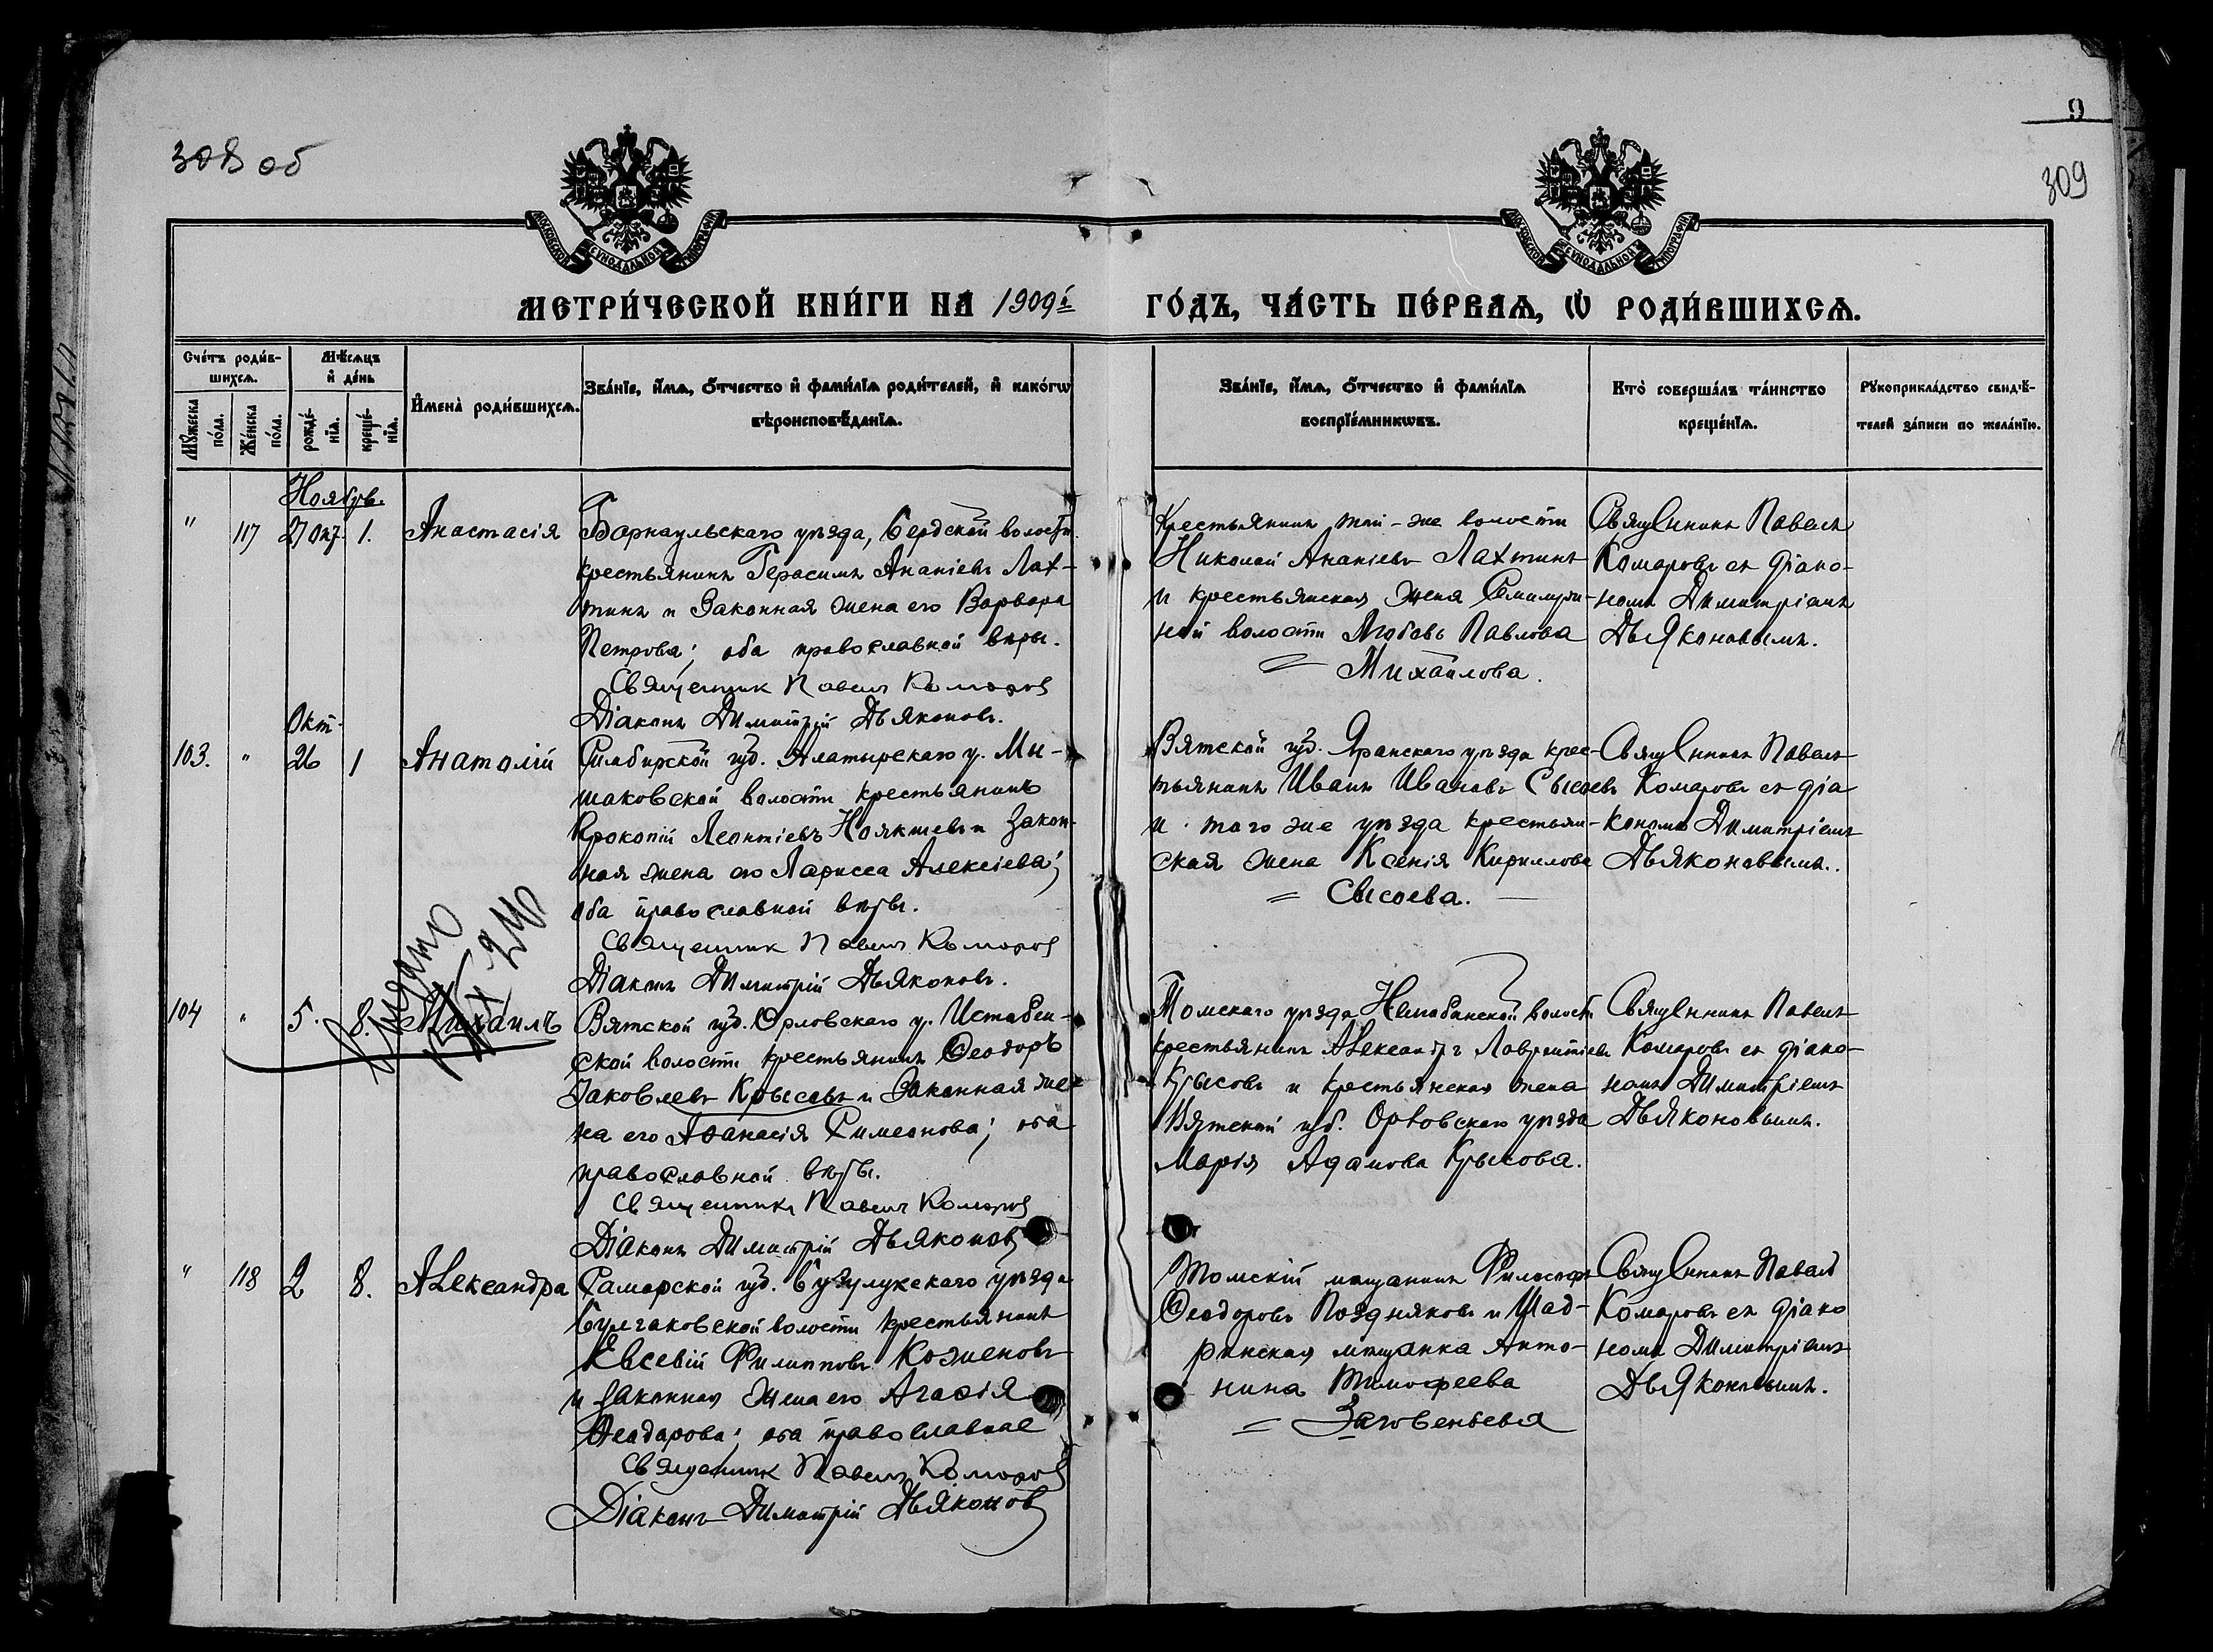 308 об
9
309
МОСКОВСКОЙ СѴНОДАЛЬНОЙ ТИПОГРАФІИ
МОСКОВСКОЙ СѴНОДАЛЬНОЙ ТИПОГРАФІИ
МЕТРИ́ЧЕСКОЙ КНИ́ГИ НА 1909й ГО́ДЪ, ЧА́СТЬ ПЕ́РВАѦ, Ѡ҆ РОДИ́ВШИХСѦ.
Сче́тъ роди́в-
шихсѧ.
Мѣ́сѧцъ
и҆ де́нь
Мꙋ́жеска
по́ла.
Же́нска
по́ла.
рожде́-
нїѧ.
креще́-
нїѧ.
И҆мена̀ роди́вшихсѧ.
Зва́нїе, и҆́мѧ, ѻ҆́тчество и҆ фамѝлїѧ роди́телей, и҆ како́гѡ
вѣроисповѣ́данїѧ.
Зва́нїе, и҆́мѧ, ѻ҆́тчество и҆ фамѝлїѧ
воспрїе́мникѡвъ.
Кто̀ соверша́лъ та́инство
креще́нїѧ.
Рꙋкоприкла́дство свидѣ́-
телей за́писи по жела́нїю.
Ноябрь.
" 117 27 окт. 1. Анастасія
Барнаульскаго уѣзда, Бердской волости
крестьянинъ Герасимъ Ананіевъ Лах-
тинъ и законная жена его Варвара
Петрова; оба православной вѣры.
Священник Павелъ Комаров
Діаконъ Димитрій Дьяконовъ.
Крестьянинъ той-же волости
Николай Ананіевъ Лахтинъ
и крестьянская жена
ной волости Любовь Павлова
= Михайлова.
Священникъ Павелъ
Комаровъ съ діако-
номъ Димитріемъ
Дьяконовымъ.
Окт.
103. " 26 1 Анатолій
Симбирской губ. Алатырскаго у. Ми-
шаковской волости крестьянинъ
Прокопій ЛеонтіевъНоякшевъ и закон-
ная жена его Ларисса Алексіева;
оба православной вѣры.
Священник Павелъ Комаров
Діаконъ Димитрій Дьяконовъ.
Вятской губ. Яранскаго уѣзда крес-
тьянинъ Иванъ Ивановъ Сысоевъ
и того же уѣзда крестьян-
ская жена Ксенія Кириллова
= Сысоева. —
Священникъ Павелъ
Комаровъ съ діа
кономъ Димитріемъ
Дьяконовымъ..
Выдано
104 " 5. 8. Михаилъ
Вятской губ. Орловскаго у. Истобен-
ской волости крестьянинъ Ѳеодоръ
Іаковлевъ Крысовъ и законная же-
на его Аѳанасія Симеонова; оба
православной вѣры.
Священникъ Павелъ Комаров
Діаконъ Димитрій Дьяконов
Томскаго уѣзда Нелюбинской волости
крестьянинъ Александръ Лаврентіевъ
Крысовъ и крестьянская жена
Вятской губ. Орловскаго уѣзда
Марія Адамова Крысова.
Священникъ Павелъ
Комаровъ съ діако-
номъ Димитріемъ
Дьяконовымъ.
" 118 2 8. Александра
Самарской губ. Бузулукскаго уѣзда
Булгаковской волости крестьянинъ
Евсевій Филипповъ Коженовъ
и законная жена его Агаѳія
Ѳеодорова; оба православные
Священник Павелъ Комаров
Діаконъ Димитрій Дьяконов
Томскій мѣщанинъ Филосоѳъ
Ѳеодоровъ Поздняковъ и Шад-
ринская мѣщанка Анто-
нина Тимофеева
= Заговеньева
Священникъ Павелъ
Комаровъ съ діако
номъ Димитріемъ
Дьяконовымъ.